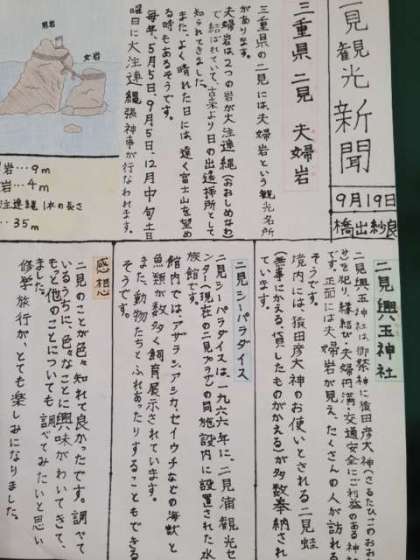 二見観光新聞
9月19日
橋出紗良
三重県二見 夫婦岩
三重県の二見には、夫婦岩という観光名所
があります。
夫婦岩は2つの岩が大注連縄(おおしめなわ)
で結ばれていて、古来より日の出遙拝所として
知られてきました。
また、よく晴れた日には、遠く富士山を望め
る時もあるそうです。
毎年、5月5日、9月5日、12月中旬土日
曜日に大注連縄張神事が行なわれます。
男岩
女岩
岩…9m
岩…4m
大注連縄1本の長さ
…35m
二見興玉神社
二見興玉神社は、御祭神に猿田彦大神(さるたひこのおお
を祀り、縁結び・夫婦円満・交通安全にご利益のある神
です。正面には夫婦岩が見え、たくさんの人が訪れる
そうです。
境内には、猿田彦大神のお使いとされる二見蛙
(無事にかえる、貸したものがかえる)が多数奉納され
ています。
二見シーパラダイス
二見シーパラダイスは一九六六年に、二見浦観光セ
ンター(現在の二見プラザ)の同施設内に設置された水
族館です。
館内では、アザラシ、アシカ、セイウチなどの海獣と
魚類が数多く飼育展示されています。
また、動物たちとふれあったりすることもできる
そうです。
感想
二見のことが色々知れて良かったです。調べて
いるうちに、色々なことに興味がわいてきて、
もっと他のことについても調べてみたいと思い
ました。
修学旅行が、とても楽しみになりました。